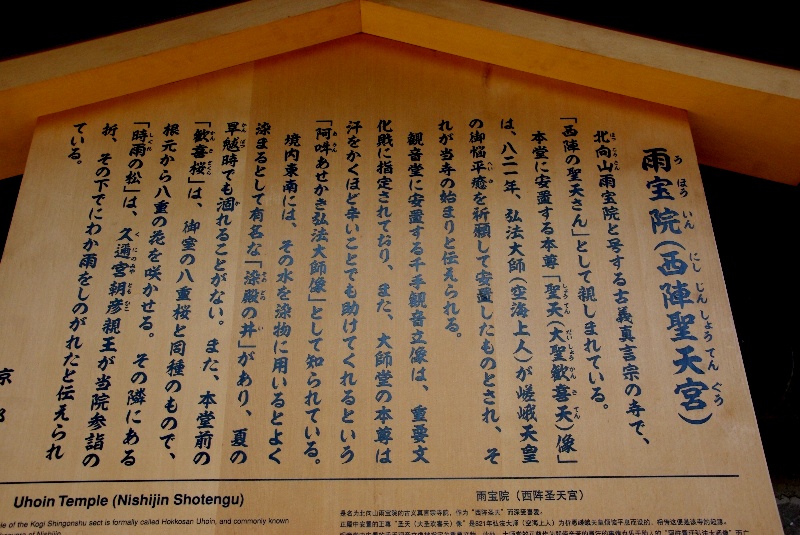 雨宝院（西陣聖天宮）
うほういん にしじんしょうてんぐう
北向山雨宝院と号する古義真言宗の寺で、
「西陣の聖天さん」として親しまれている。
本堂に安置する本尊「聖天（大聖歓喜天）像」
は、八二一年、弘法大師（空海上人）が嵯峨天皇
の御悩平癒を祈願して安置したものとされ、そ
れが当寺の始まりと伝えられる。
観音堂に安置する千手観音立像は、重要文
化財に指定されており、また、大師堂の本尊は
「阿吽あせかき弘法大師像」として知られている。
汗をかくほど辛いことでも助けてくれるという
境内東南には、その水を染物に用いるとよく
染まるとして有名な「染殿の井」があり、夏の
旱魃時でも涸れることがない。また、本堂前の
「歓喜桜」は、御室の八重桜と同種のもので、
根元から八重の花を咲かせる。その隣にある
「時雨の松」は、久邇宮朝彦親王が当院参詣の
折、その下でにわか雨をしのがれたと伝えられ
ている。
京都
Uhoin Temple (Nishijin Shotengu)
ple of the Kogi Shingonshu sect is formally called Hokkosan Uhoin, and commonly known
雨宝院（西阵圣天宫）
是名为北向山雨宝院的古义真言宗寺院，作为“西阵圣天”而深受喜爱。